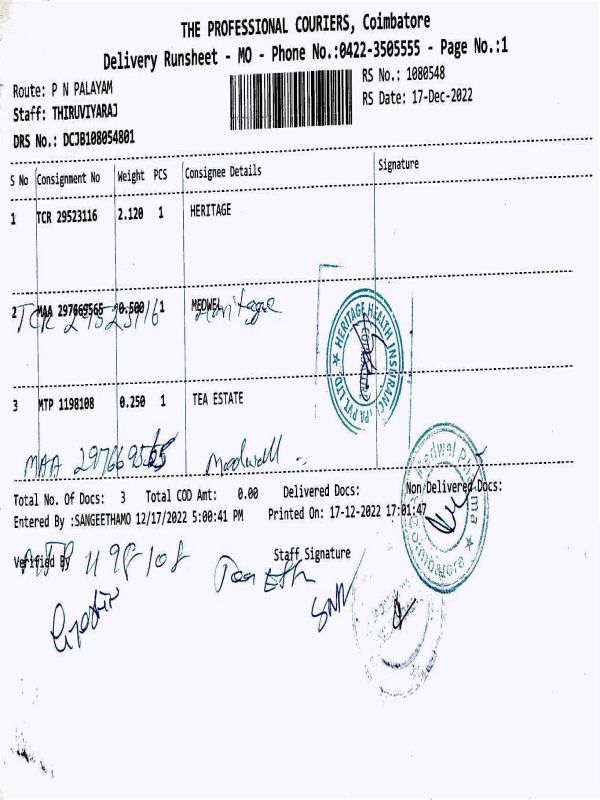 THE PROFESSIONAL COURIERS, Coimbatore
Delivery Runsheet - MO - Phone No.:0422-3505555 - Page No.:1
Route: P N PALAYAM
RS No.: 1080548
Staff: THIRUVIYARAJ
RS Date: 17-Dec-2022
DRS No.: DCJB108054801
S No Consignment No Weight PCS Consignee Details Signature
1 TCR 29523116 2.120 1 HERITAGE
2 MAA 297669565 0.500 1 MEDWEL
TCR 29523116 Heritage
HERITAGE HEALTH INSURANC TPA PVT. LTD.
3 MTP 1198108 0.250 1 TEA ESTATE
MAA 297669565 Medwell
Medwel Pharma
Coimbatore
Total No. Of Docs: 3 Total COD Amt: 0.00 Delivered Docs: Non/Delivered Docs:
Entered By :SANGEETHAMO 12/17/2022 5:00:41 PM Printed On: 17-12-2022 17:01:47
Verified By Staff Signature
MTP 1198108 Tea Esth